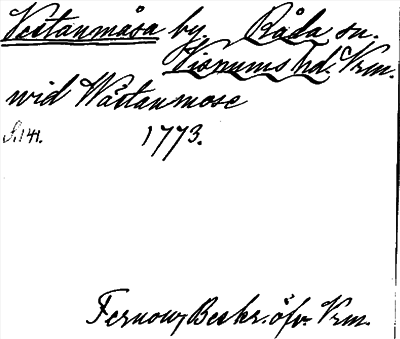 Vestanmåsa by Råda sn.
Visnums hd. Vrm.
wid Wåstanmose
S. 141. 1773.
Fernow, Beskr. öfv. Vrm.